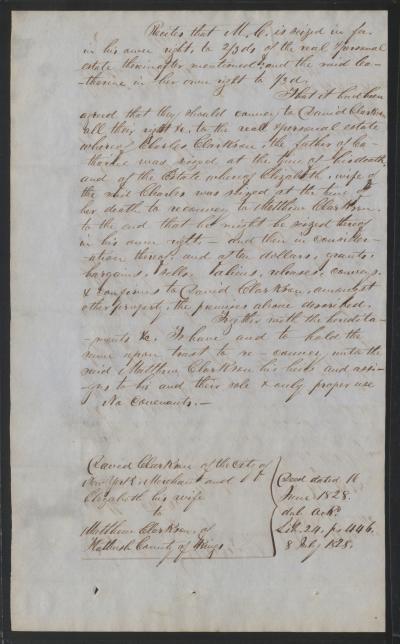 Recites that M. C. is seized in fee
in his own right, to 2/3ds of the real & personal
estate thereinafter mentioned & and the said Ca-
-tharine in her own right to 1/3d.
That it had been
agreed that they should convey to David Clarkson
all their right &c. to the real & personal estate
whereof Charles Clarkson, the father of Ca-
tharine was seized at the time of his death,
and of the Estate whereof Elizabeth, wife of
the said Charles was seized at the time of
her death to reconvey to Matthew Clarkson
to the end that he might be seized thereof
in his own right, - and then in consider-
-ation thereof, and after dollars, grants,
bargains, sells, aliens, releases, conveys
& confirms to David Clarkson, amongst
other property, the premises above described.
Together with the heredita-
-ments &c. To have and to hold the
same upon trust to re-convey unto the
said Matthew Clarkson his heirs and assi-
-gns to his and their sole & only proper use
No Covenants. -
David Clarkson of the City of
New York, Merchant and
Elizabeth his wife
to
Matthew Clarkson of
Flatbush County of Kings
Deed dated 16
June 1828.
duly ackd.
Lib. 24. pa 446.
8 July 1828.